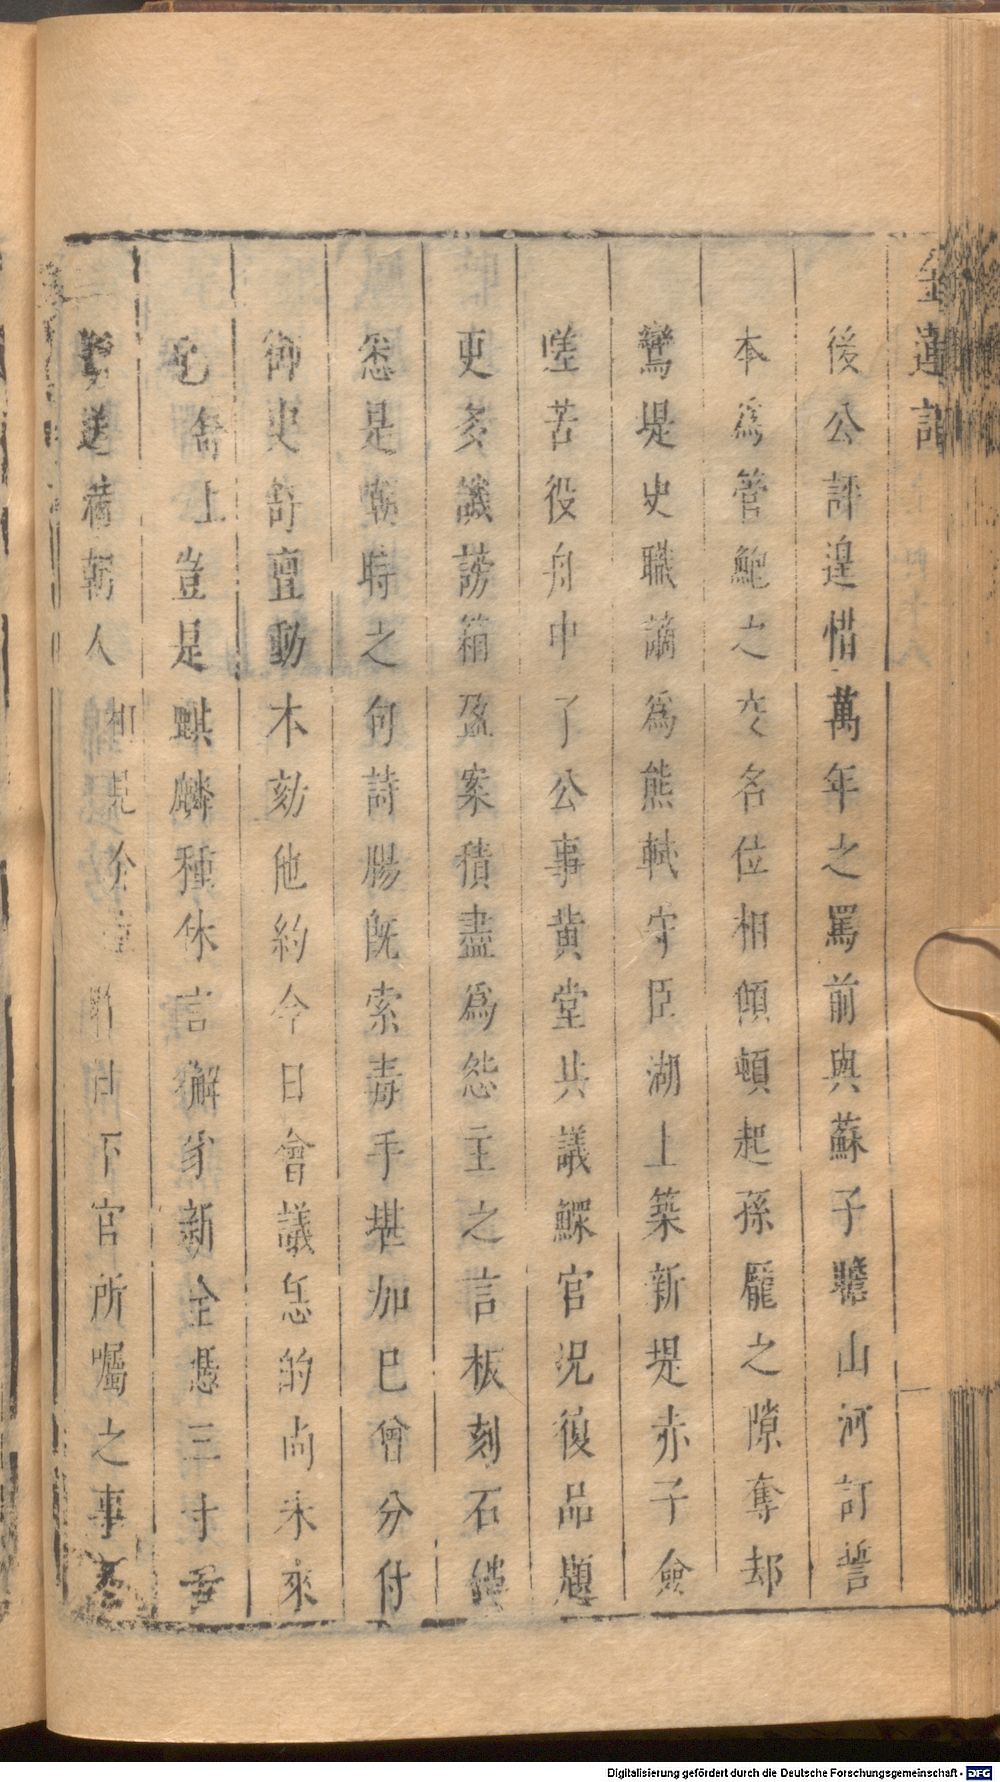 金蓮記
後公評遑惜萬年之罵前與蘇子瞻山河訂誓
本爲管鮑之交名位相傾頓起孫龐之隙奪却
鶯堤史職謫爲熊軾守臣湖上築新堤赤子僉
嗟苦役舟中了公事黄堂共議鰥官况復品題
吏多譏謗箱盈案積盡爲怨主之言板刻石
怨是朝時之句詩腸旣索毒手堪加已曾分付
御史舒亶動本劾他約今日會議怎的尚未來
也 上豈是麒麟種休言獬豸新全憑三寸舌
送滿朝人 相見介 昨日下官所囑之事
Digitalisierung gefördert durch die Deutsche Forschungsgemeinschaft - DFG